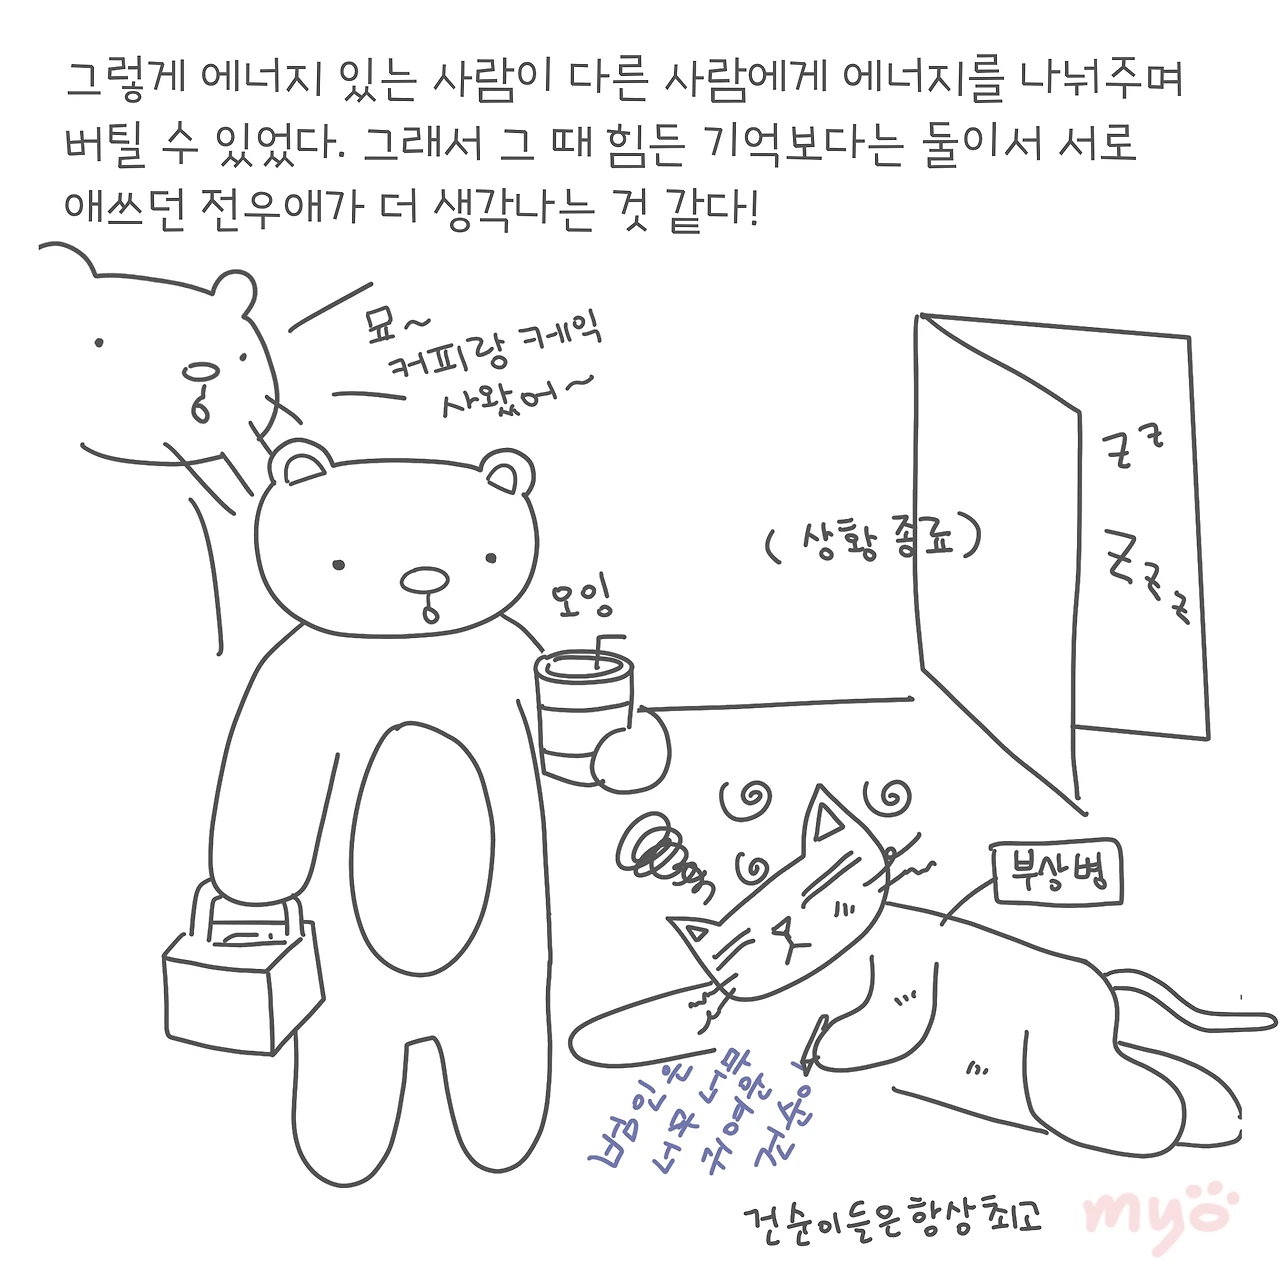 그렇게 에너지 있는 사람이 다른 사람에게 에너지를 나눠주며
버틸 수 있었다. 그래서 그 때 힘든 기억보다는 둘이서 서로
애쓰던 전우애가 더 생각나는 것 같다!
묘~
커피랑 케익
사왔어~
z z
(상황종료)
z z z
오잉
부상병
범인은
너무 너무
귀여운
건순이
건순이들은항상최고
myö